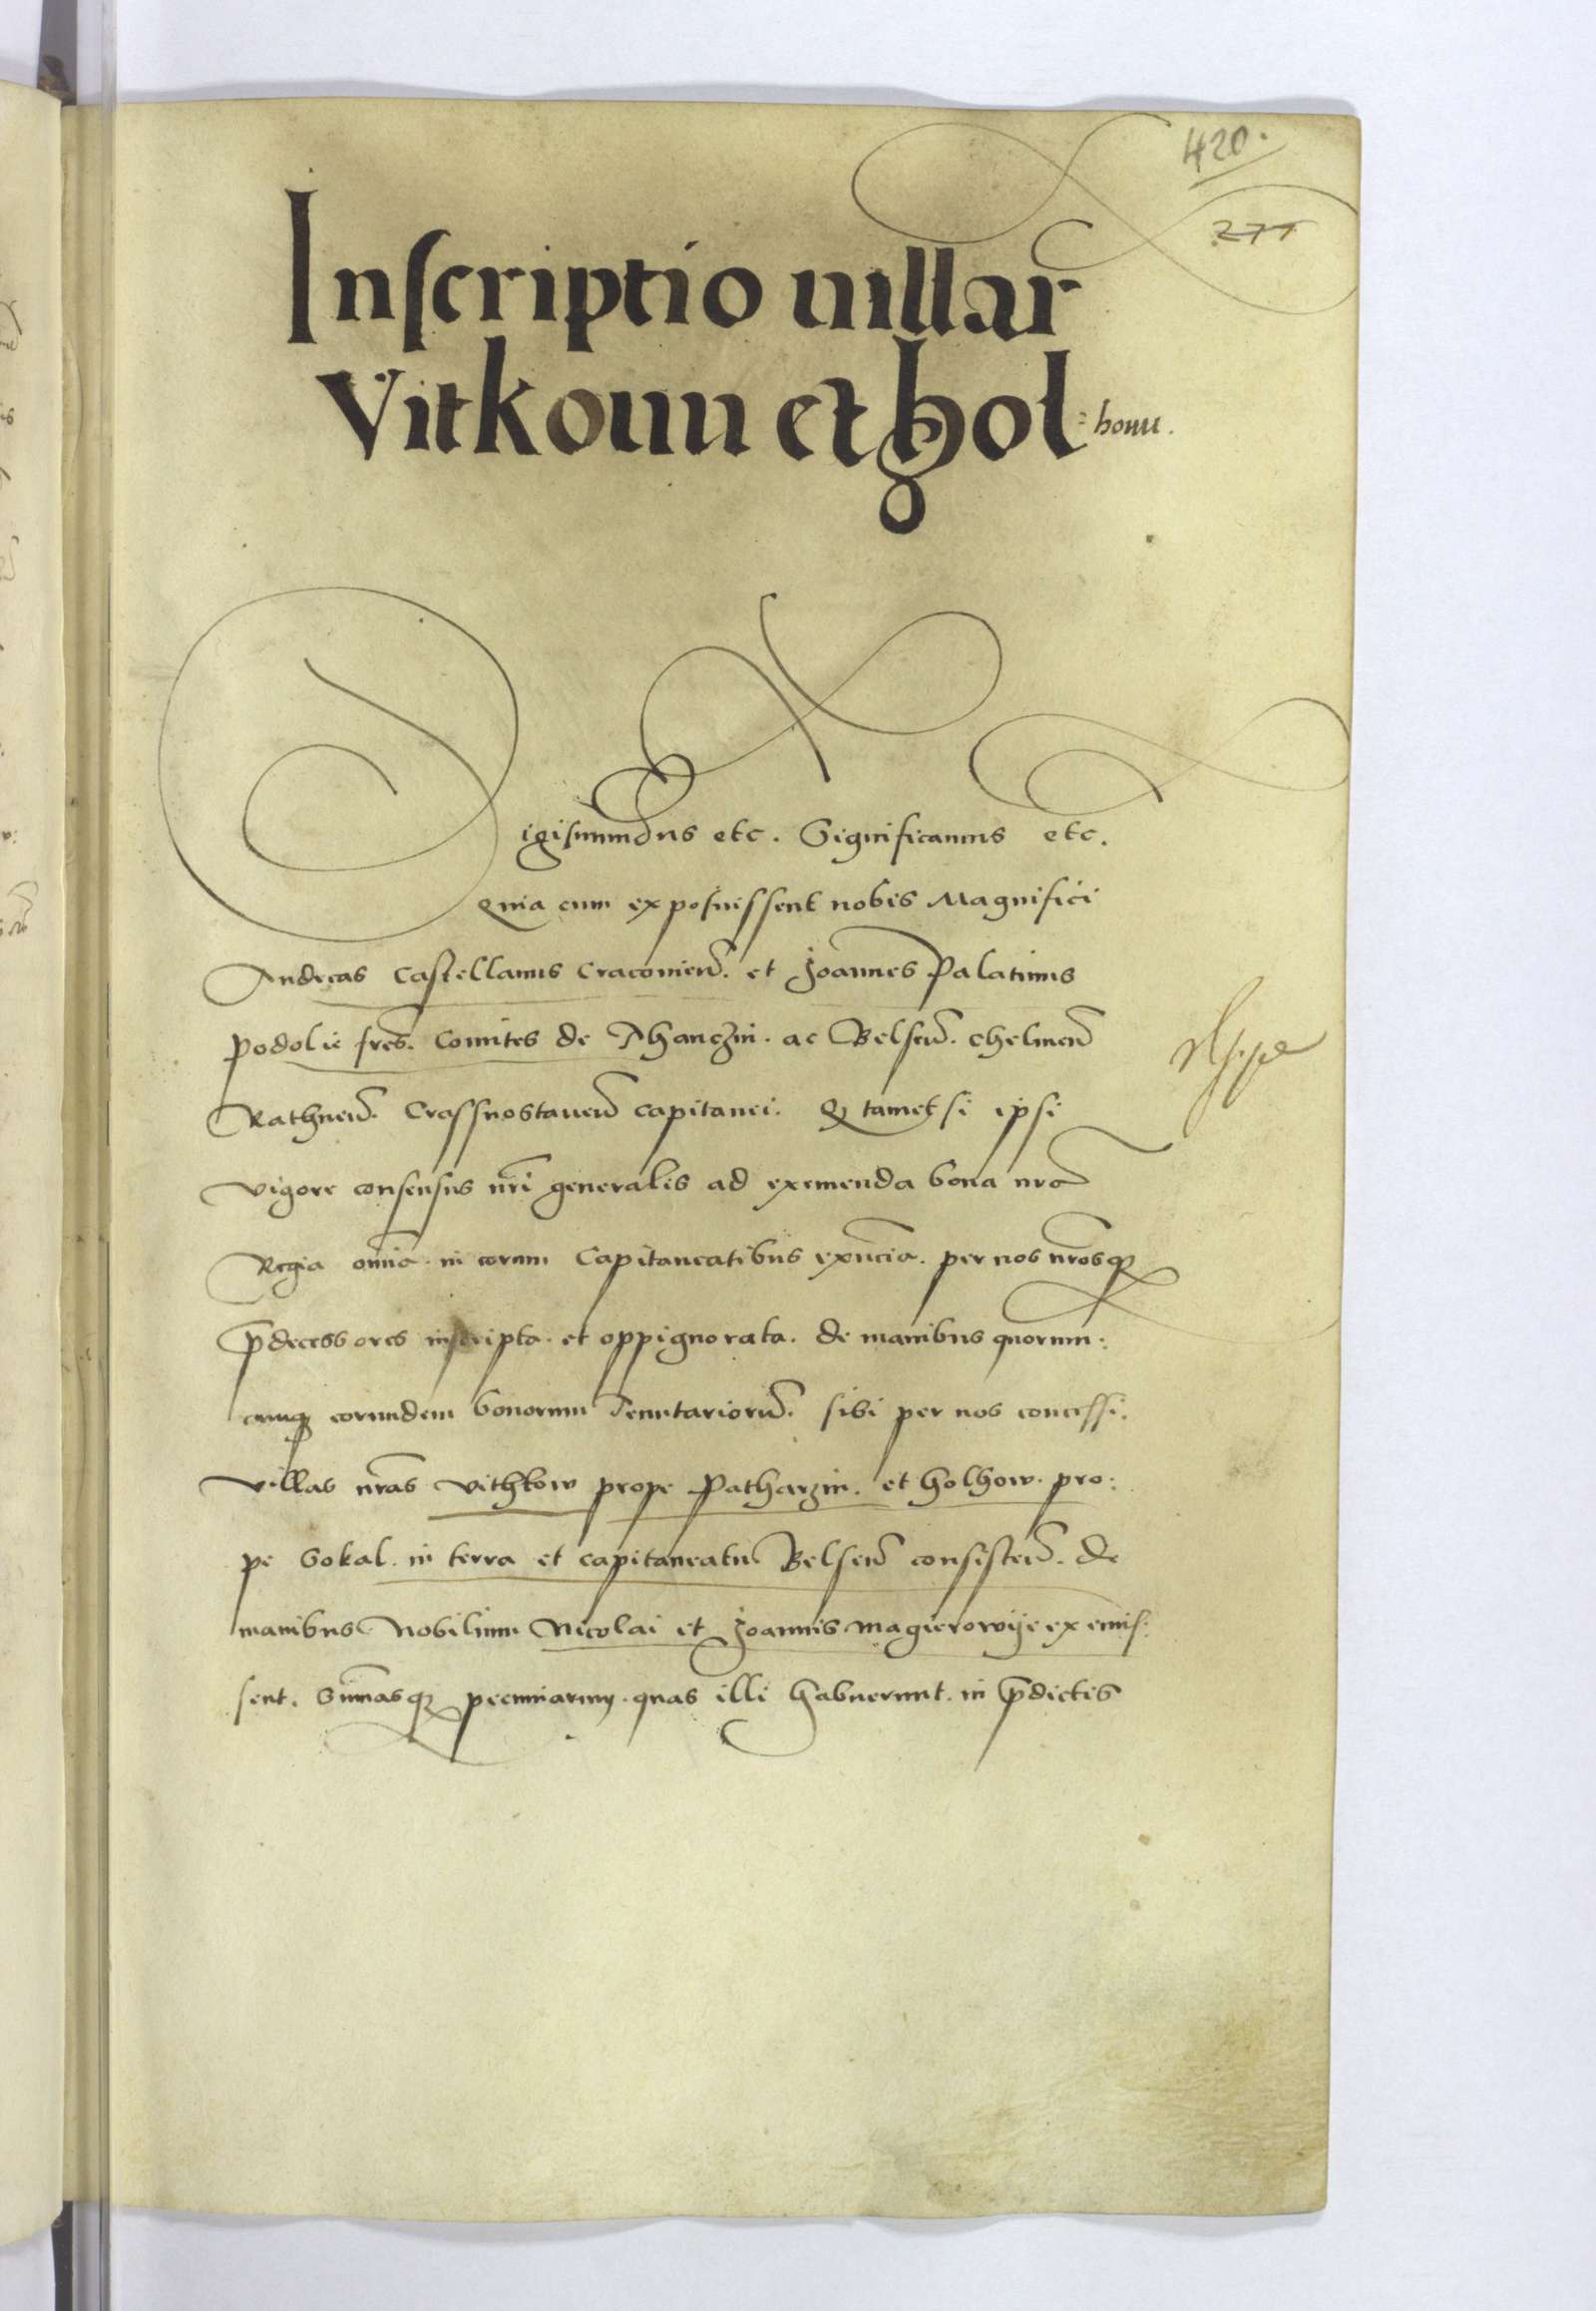 420.
271
Inscriptio uillar
Vitkouu et hol:houu.
Sigismundus etc. Significamus etc.
Quia cum exposuissent nobis Magnifici
Andreas Castellanus Cracouien̄. et Joannes Palatinus
Podolie fr̄es. Comites de Thanczin. ac Belsen̄. Chelmen̄
Rathnen̄. Crassnostauen̄ capitanei. Q tametsi ipsi
vigore consensus nr̄i generalis ad exemenda bona nr̄a
Regia omīa. in eorum Capitaneatibus exn̄cia. per nos nr̄osq
p̄decessores inscripta. et oppignorata. de manibus quorum:
cunq eorundem bonorum Tenutariorū. sibi per nos concessi.
villas nr̄as Vithkow prope Patharzin. et Holhow. pro:
pe Sokal. in terra et capitaneatu Belsen̄ consisten̄. de
manibus Nobilium Nicolai et Joannis Magierowije exemis:
sent. Sum̄asq pecuniarum. quas illi habuerunt. in p̄dictis